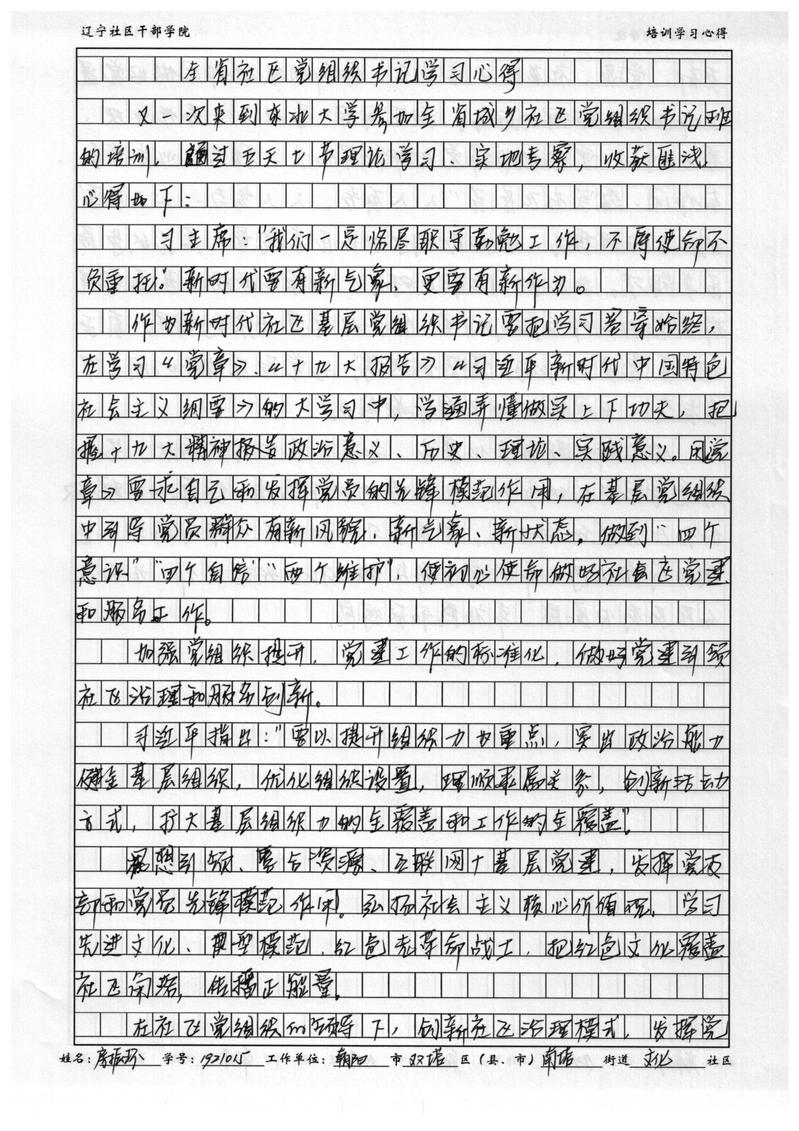 辽宁社区干部学院 培训学习心得
全省社区党组织书记学习心得
又一次来到东北大学参加全省城乡社区党组织书记班
的培训。通过五天七节理论学习、实地考察，收获匪浅，
心得如下：
习主席："我们一定恪尽职守勤勉工作，不辱使命不
负重托。"新时代要有新气象，更要有新作为。
作为新时代社区基层党组织书记要把学习贯穿始终，
在学习《党章》、《十九大报告》《习近平新时代中国特色
社会主义纲要》的大学习中，学通弄懂做实上下功夫，把
握十九大精神报告政治意义、历史、理论、实践意义。用《党
章》要求自己和发挥党员的先锋模范作用，在基层党组织
中引导党员群众有新风貌、新气象、新状态。做到"四个
意识""四个自信""两个维护"，使初心使命做好社会区党建
和服务工作。
加强党组织提升，党建工作的标准化，做好党建引领
社区治理和服务创新。
习近平指出："要以提升组织力为重点，突出政治能力
健全基层组织，优化组织设置，理顺隶属关系，创新活动
方式，扩大基层组织力的全覆盖和工作的全覆盖"。
思想引领、整合资源、互联网+基层党建，发挥党支
部和党员先锋模范作用。弘扬社会主义核心价值观，学习
先进文化、典型模范、红色老革命战士，把红色文化覆盖
社区角落，传播正能量。
在社区党组织的领导下，创新社区治理模式，发挥党
姓名：房振珍 学号：1921015 工作单位：朝阳 市 双塔 区（县、市）南塔 街道 文化 社区